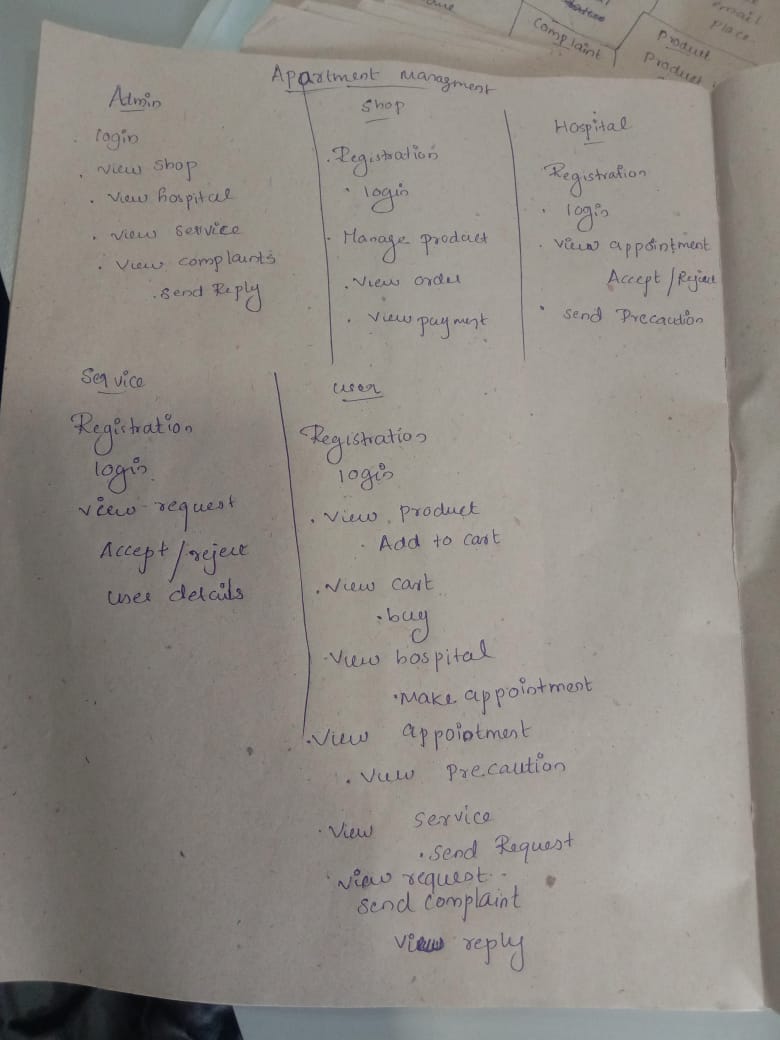 Complaint
Product
Product
email
place
Apartment Managment
Admin
login
View Shop
View hospital
View service
View complaints
Send Reply
Shop
Registration
login
Manage product
View order
View payment
Hospital
Registration
login
View appointment
Accept / Reject
Send Precaution
Service
Registration
login
View request
Accept / reject
user details
User
Registration
login
View product
Add to cart
View cart
buy
View hospital
Make appointment
View appointment
View Precaution
View service
Send Request
View request
Send complaint
View reply